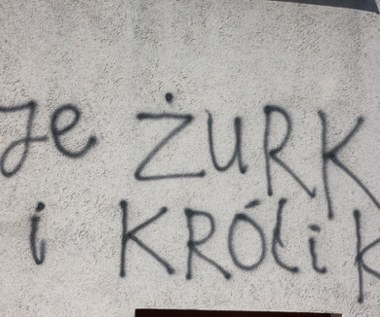 je ŻURK
i KRÓLIK